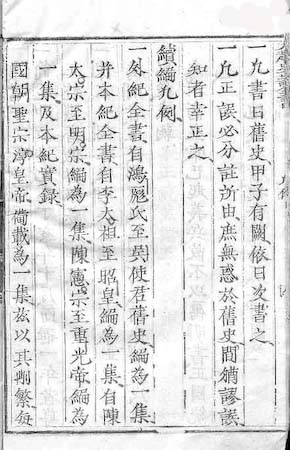 一凡書日舊史甲子有闕依日次書之
一凡正誤必分註所由庶無惑於舊史間猶謬誤
知者幸正之
續編凡例
一外紀全書自鴻厖氏至吳使君舊史編為一集
并本紀全書自李太祖至昭皇編為一集自陳
太宗至明宗編為一集陳憲宗至重光帝編為
一集及本紀實錄
國朝聖宗淳皇帝備載為一集茲以其刪繁每